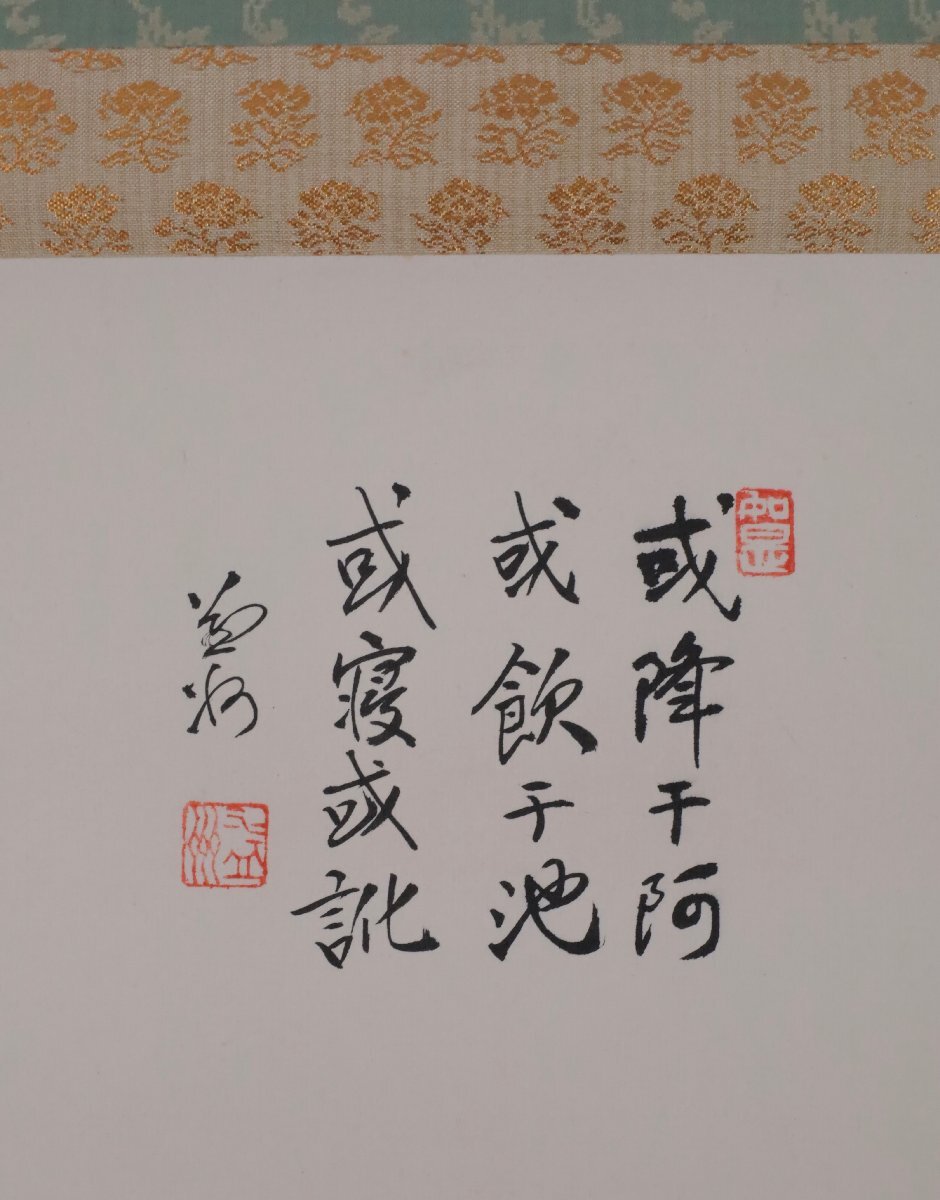 或降于阿
或飲于池
或寝或訛